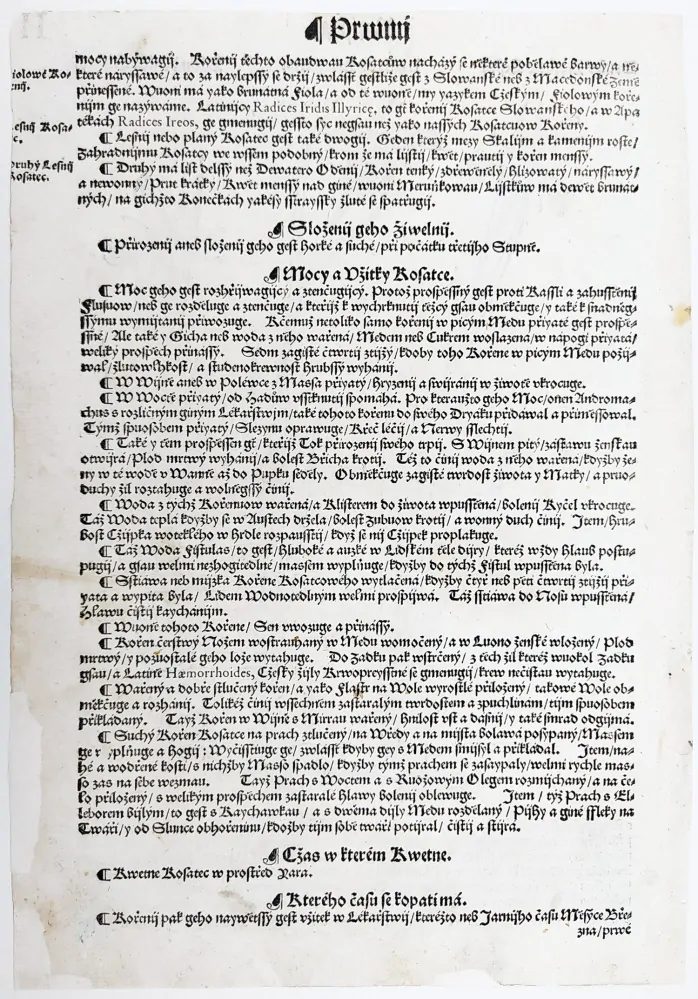 ¶ Prwnij
mocy nabýwagij. Kořenij těchto obaudwau Kosatcůw nacházý se některé pobělawé barwy/a ně-
které náryssawé/a to za naylepssý se držij/zwlásst gestliže gest z Slowanské neb z Macedonské Země
přinessené. Wuoni má yako brunátná Fiola/a od té wuoně/my yazykem Cžeským/ Fiolowým koře-
nijm ge nazýwáme. Latinijcy Radices Iridis Illyricę, to gest kořenij Kosatce Slowanského/a w Apa
tékách Radices Ireos, ge gmenugij/gessto syc negsau než yako nassých Kosatcuow Kořeny.
Fiolowé Ko-
řenij.
¶ Lesnij nebo planý Kosatec gest také dwogij. Geden kterýž mezy Skalijm a kamenijm roste/
Zahradnijmu Kosatcy we wssem podobný/krom že má lijstij/kwět/prautij y kořen menssý.
Lesnij Kosa-
tec.
¶ Druhý má list delssý než Dewatero Oděnij/Kořen tenký/zdřewnělý/hlizowatý/náryssawý/
a newonný/Prut krátký/Kwět menssý nad giné/wuoni Meruňkowau/Lijstkůw má dewět brunát-
ných/na gichžto Konečkách yakési sstrayssky žluté se spatřugij.
Druhý Lesnij
Kosatec.
¶ Složenij geho Žiwelnij.
¶ Přirozenij aneb složenij geho gest Horké a suché/při počátku třetijho Stupně.
¶ Mocy a Vžitky Kosatce.
¶ Moc geho gest rozhřijwagijcý a ztenčugijcý. Protož prospěssný gest proti Kassli a zahusstěnij
Flusuow/neb ge rozděluge a ztenčuge/a kteřijž k wychrknutij těžcý gsau obměkčuge/y také k snadněg-
ssýmu wymijtánij přiwozuge. Kčemuž netoliko samo kořenij w picým Medu přigaté gest prospě-
ssné/ Ale také y Gicha neb woda z něho wařená/Medem neb Cukrem woslazená/w nápogi přigatá/
weliký prospěch přinássý. Sedm zagisté čtwrtij ztijžij/kdoby toho Kořene w picým Medu požij-
wal/žlutowlhkost/a studenokrewnost hrubssý wyhánij.
¶ W Wijně aneb w Polewce z Massa přigatý/hryzenij a swijránij w žiwotě vkrocuge.
¶ W Woctě přigatý/od Hadůw vsstknutij spomáhá. Pro kterauzto geho Moc/onen Androma-
chus s rozličným giným Lékařstwijm/také tohoto kořenu do swého Dryáku přidáwal a přiměssowal.
Týmž spuosobem přigatý/Slezynu oprawuge/Křeč léčij/a Nerwy sslechtij.
¶ Také y těm prospěssen gest/kteřijž Tok přirozenij swého trpij. S Wijnem pitý/zástawu ženskau
otwijrá/Plod mrtwý wyhánij/a bolest Břicha krotij. Též to činij woda z něho wařená/kdyžby že-
ny w té wodě w Wanně až do Pupku seděly. Obměkčuge zagisté twrdost žiwota y Matky/ a pruo-
duchy žil roztahuge a wolněgssý činij.
¶ Woda z týchž Kořenuow wařená/a Klisterem do žiwota wpusstěná/bolenij Kyčel vkrocuge.
Táž Woda teplá kdyžby se w Austech držela/bolest Zubuow krotij/a wonný duch činij. Item/Hru-
bost Cžijpka wotěklého w hrdle rozpausstij/když se nij Cžijpek proplakuge.
¶ Táž Woda Fistulas/to gest/hluboké a auzké w Lidském těle dijry/ kteréž wždy hlaub postu-
pugij/a gsau welmi nezhogitedlné/massem wyplňuge/kdyžby do týchž Fistul wpusstěna byla.
¶ Sstiáwa neb mijzka Kořene Kosatcowého wytlačená/kdyžby čtyř neb pěti čtwrtij ztijžij při-
gatá a wypita byla/ Lidem Wodnotedlným welmi prospijwá. Táž sstiáwa do Nosu wpusstěná/
Hlawu čistij kaychánijm.
¶ Wuoně tohoto Kořene/ Sen vwozuge a přinássý.
¶ Kořen čerstwý Nožem wostrauhaný w Medu womočený/a w Luono ženské wložený/ Plod
mrtwý/y pozuostalé geho lože wytahuge. Do Zadku pak wstrčený/ z těch žil kteréž wuokol Zadku
gsau/a Latině Hæmorrhoides, Cžesky žijly Krwopreyssťné se gmenugij/krew nečistau wytahuge.
¶ Wařený a dobře stlučený kořen/a yako Flastr na Wole wyrostlé přiložený/ takowé Wole ob-
měkčuge a rozhánij. Tolikéž činij wssechněm zastaralým twrdostem a zpuchlinám/tijm spuosobem
přikládaný. Tayž Kořen w Wijně s Mirrau wařený/hnilost vst a dásnij/y také smrad odgijmá.
¶ Suchý Kořen Kosatce na prach ztlučený/na Wředy a na mijsta bolawá posypaný/Massem
ge wyplňuge a hogij: Wyčisstiuge ge/zwlásst kdyby gey s Medem smijsyl a přikládal. Item/na-
hé a wodřené kosti/s nichžby Masso spadlo/kdyžby týmž prachem se zasaypaly/welmi rychle mas-
so zas na sebe wezmau. Tayž Prach s Woctem a s Ruožowým Olegem rozmijchaný/a na če-
lo přiložený/s welikým prospěchem zastaralé hlawy bolenij oblewuge. Item / týž Prach s El-
leborem bijlým/to gest s Kaychawkau / a s dwěma dijly Medu rozdělaný/ Pijhy a giné ssleky na
Twáři/y od Slunce obhořeninu/kdožby tijm sobě twáři potijral/čistij a stijrá.
¶ Cžas w kterém Kwetne.
¶ Kwetne Kosatec w prostřed Yara.
¶ Kterého času se kopati má.
¶ Kořenij pak geho naywětssý gest vžitek w Lékařstwij/kteréžto neb Jarnijho času Měsýce Bře-
zna/prwé